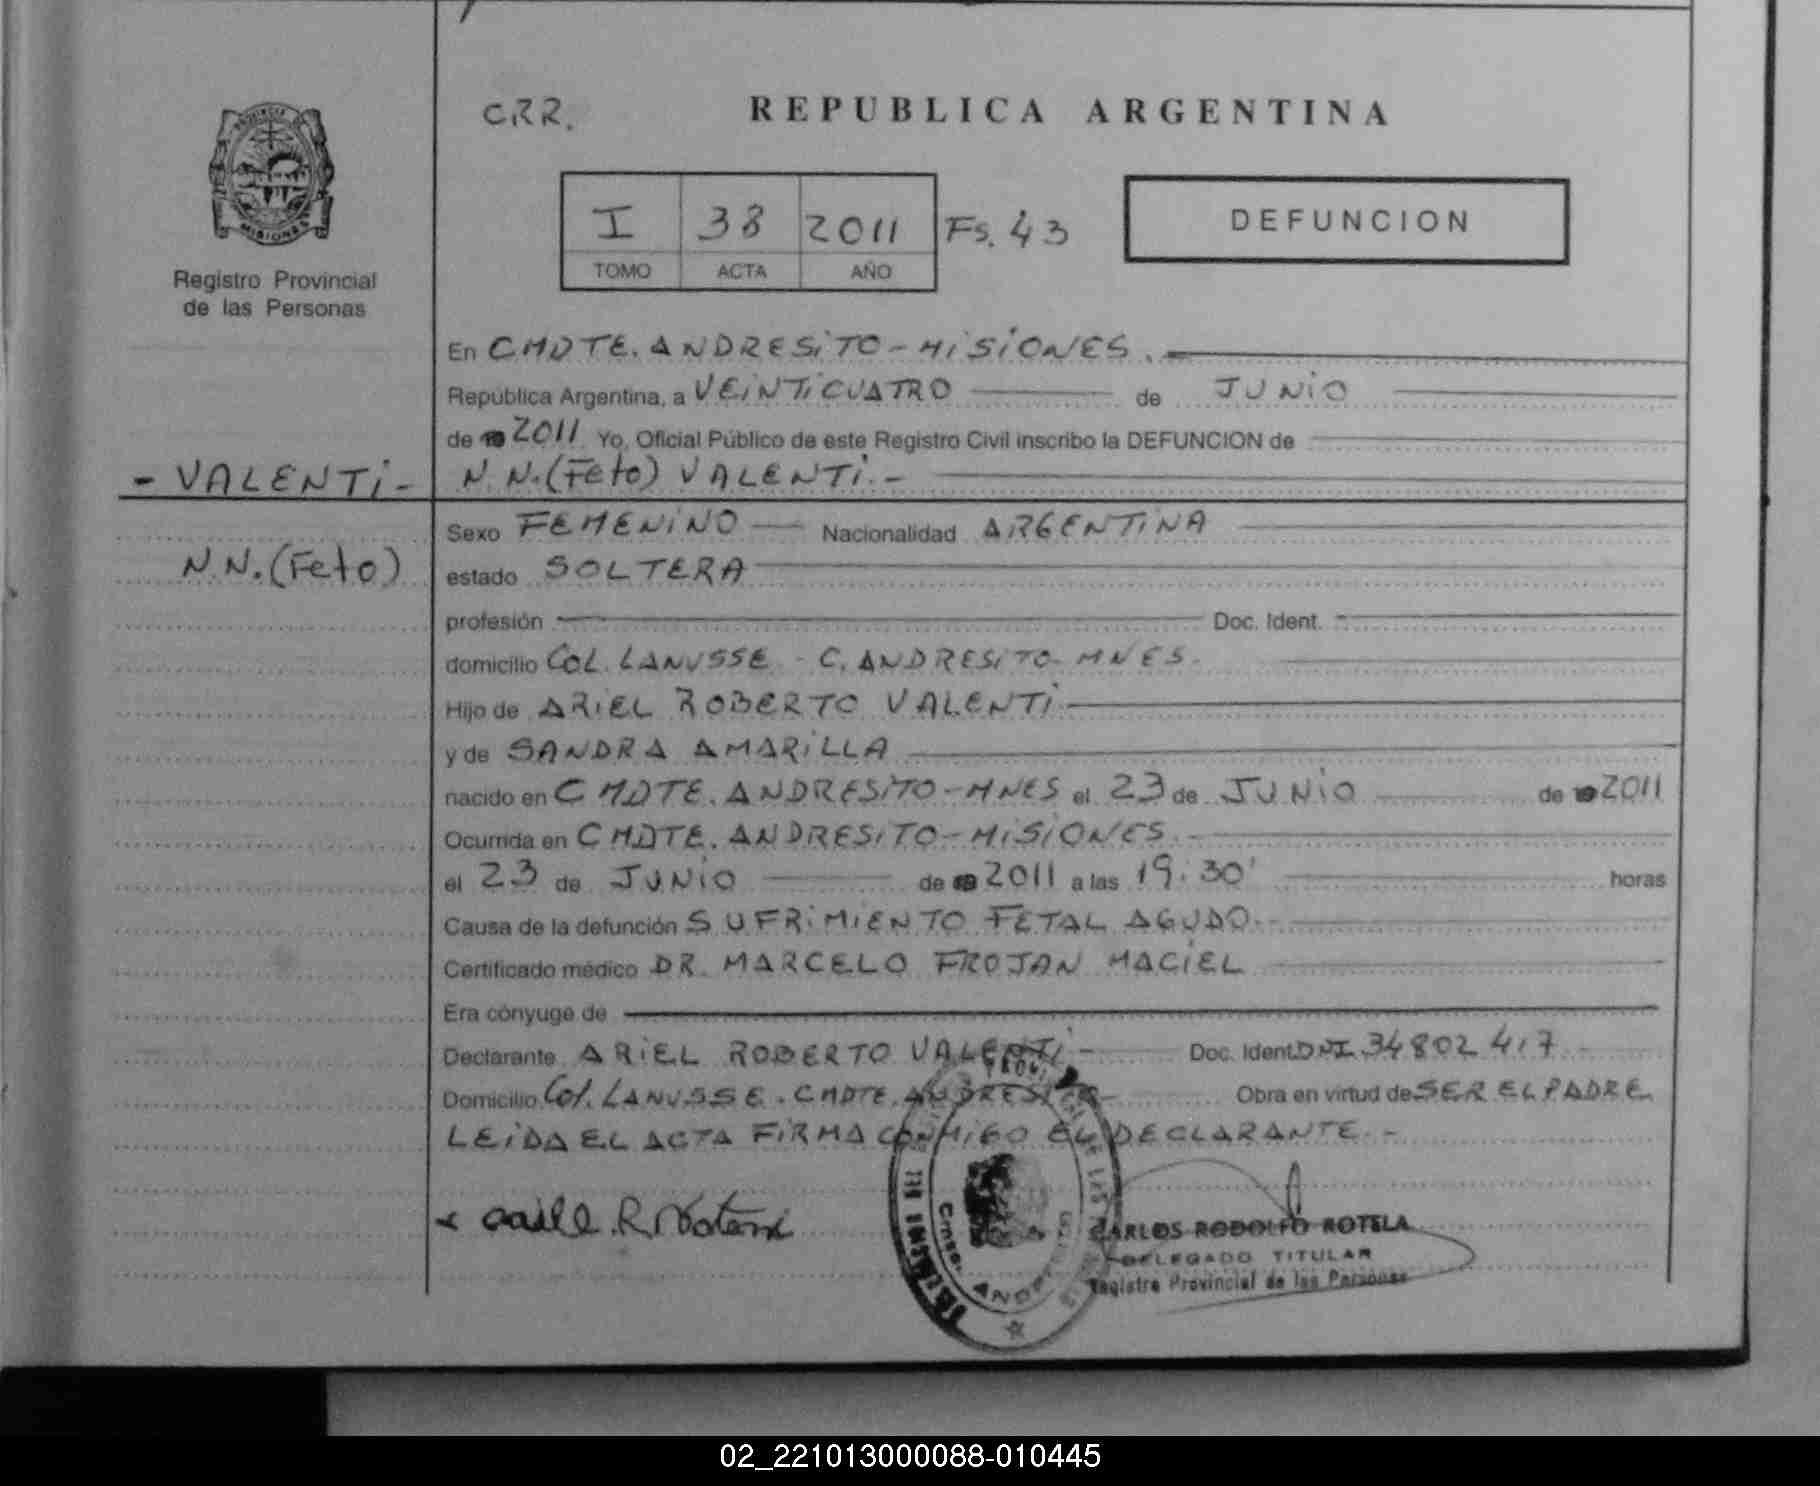 CRR.
REPUBLICA ARGENTINA
PROVINCIA
MISIONES
I 38 2011 Fs. 43
TOMO ACTA AÑO
DEFUNCION
Registro Provincial
de las Personas
En CMDTE. ANDRESiTO - MiSiONES.
República Argentina, a VEiNTiCUATRO de JUNiO
de 2011 Yo, Oficial Público de este Registro Civil inscribo la DEFUNCION de
- VALENTi - N.N. (Feto) VALENTi. -
Sexo FEMENiNO Nacionalidad ARGENTiNA
N.N. (Feto)
estado SOLTERA
profesión Doc. Ident.
domicilio COL. LANUSSE - C. ANDRESiTO - MNES.
Hijo de ARiEL ROBERTO VALENTi
y de SANDRA AMARiLLA
nacido en CMDTE. ANDRESiTO - MNES el 23 de JUNiO de 2011
Ocurrida en CMDTE. ANDRESiTO - MiSiONES.
el 23 de JUNiO de 2011 a las 19:30' horas
Causa de la defunción SUFRiMiENTO FETAL AGUDO.
Certificado médico DR. MARCELO FROJAN MACiEL
Era cónyuge de
Declarante ARiEL ROBERTO VALENTi - Doc. Ident. DNI 34802417
Domicilio Col. LANUSSE. CMDTE. ANDRESiTO Obra en virtud de SER EL PADRE.
LEiDA EL ACTA FiRMA CONMiGO EL DECLARANTE. -
CARLOS RODOLFO ROTELA
DELEGADO TITULAR
Registro Provincial de las Personas
02_221013000088-010445